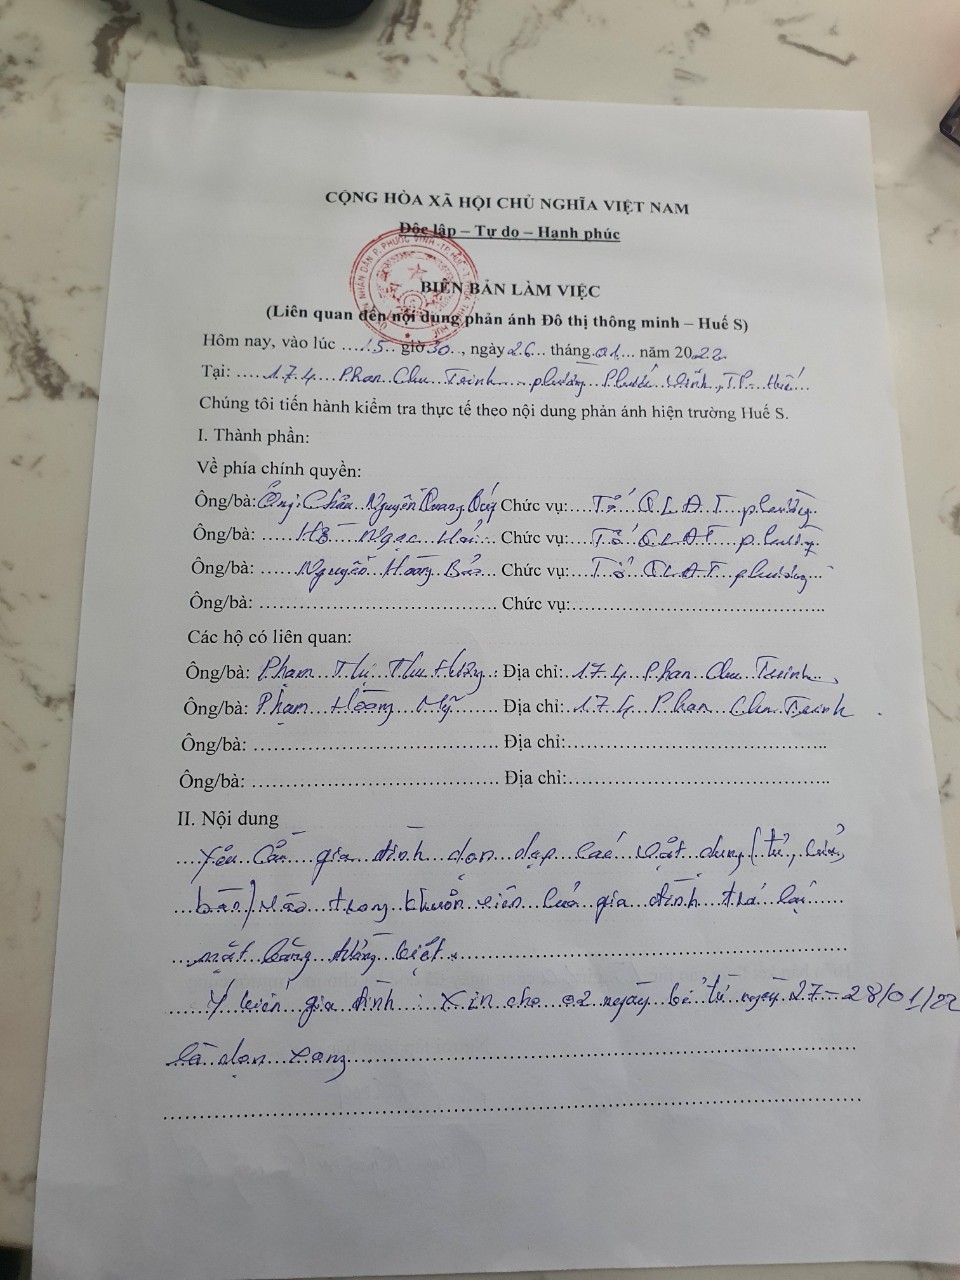 CỘNG HÒA XÃ HỘI CHỦ NGHĨA VIỆT NAM
Độc lập – Tự do – Hạnh phúc
BIÊN BẢN LÀM VIỆC
(Liên quan đến nội dung phản ánh Đô thị thông minh – Huế S)
Hôm nay, vào lúc ....15.. giờ 30.., ngày 26... tháng.01... năm 2022.
Tại: ....174...Phan..Chu..Trinh....phường...Phước..Vĩnh.,TP...Huế...
Chúng tôi tiến hành kiểm tra thực tế theo nội dung phản ánh hiện trường Huế S.
I. Thành phần:
Về phía chính quyền:
Ông/bà: Ông: Châu Nguyễn Quang Chức vụ:....Tổ Q.L.Đ.T phường.
Ông/bà: ......Hồ Ngọc Hải... Chức vụ:....Tổ QLĐT phường
Ông/bà: ......Nguyễn Hoàng Bảo... Chức vụ:....Tổ QLĐT phường...
Ông/bà: ........................................ Chức vụ:...........................................
Các hộ có liên quan:
Ông/bà: Phạm...Thị...Thu..Hằng..: Địa chỉ: .174..Phan...Chu..Trinh..
Ông/bà: Phạm...Hoàng....Mỹ...... Địa chỉ: .174...Phan...Chu..Trinh
Ông/bà: ........................................ Địa chỉ:...........................................
Ông/bà: ........................................ Địa chỉ:...........................................
II. Nội dung
....Yêu Cầu...gia...đình...dọn..dẹp...các...vật..dụng.(tủ.,
...bàn.).vào...trong..khuôn..viên..của..gia..đình...trả..lại......
...mặt..bằng..đường..kiệt..
.....Ý kiến..gia..đình...: Xin cho..02 ngày...kể từ..ngày..27-28/01/22
là dọn...xong....